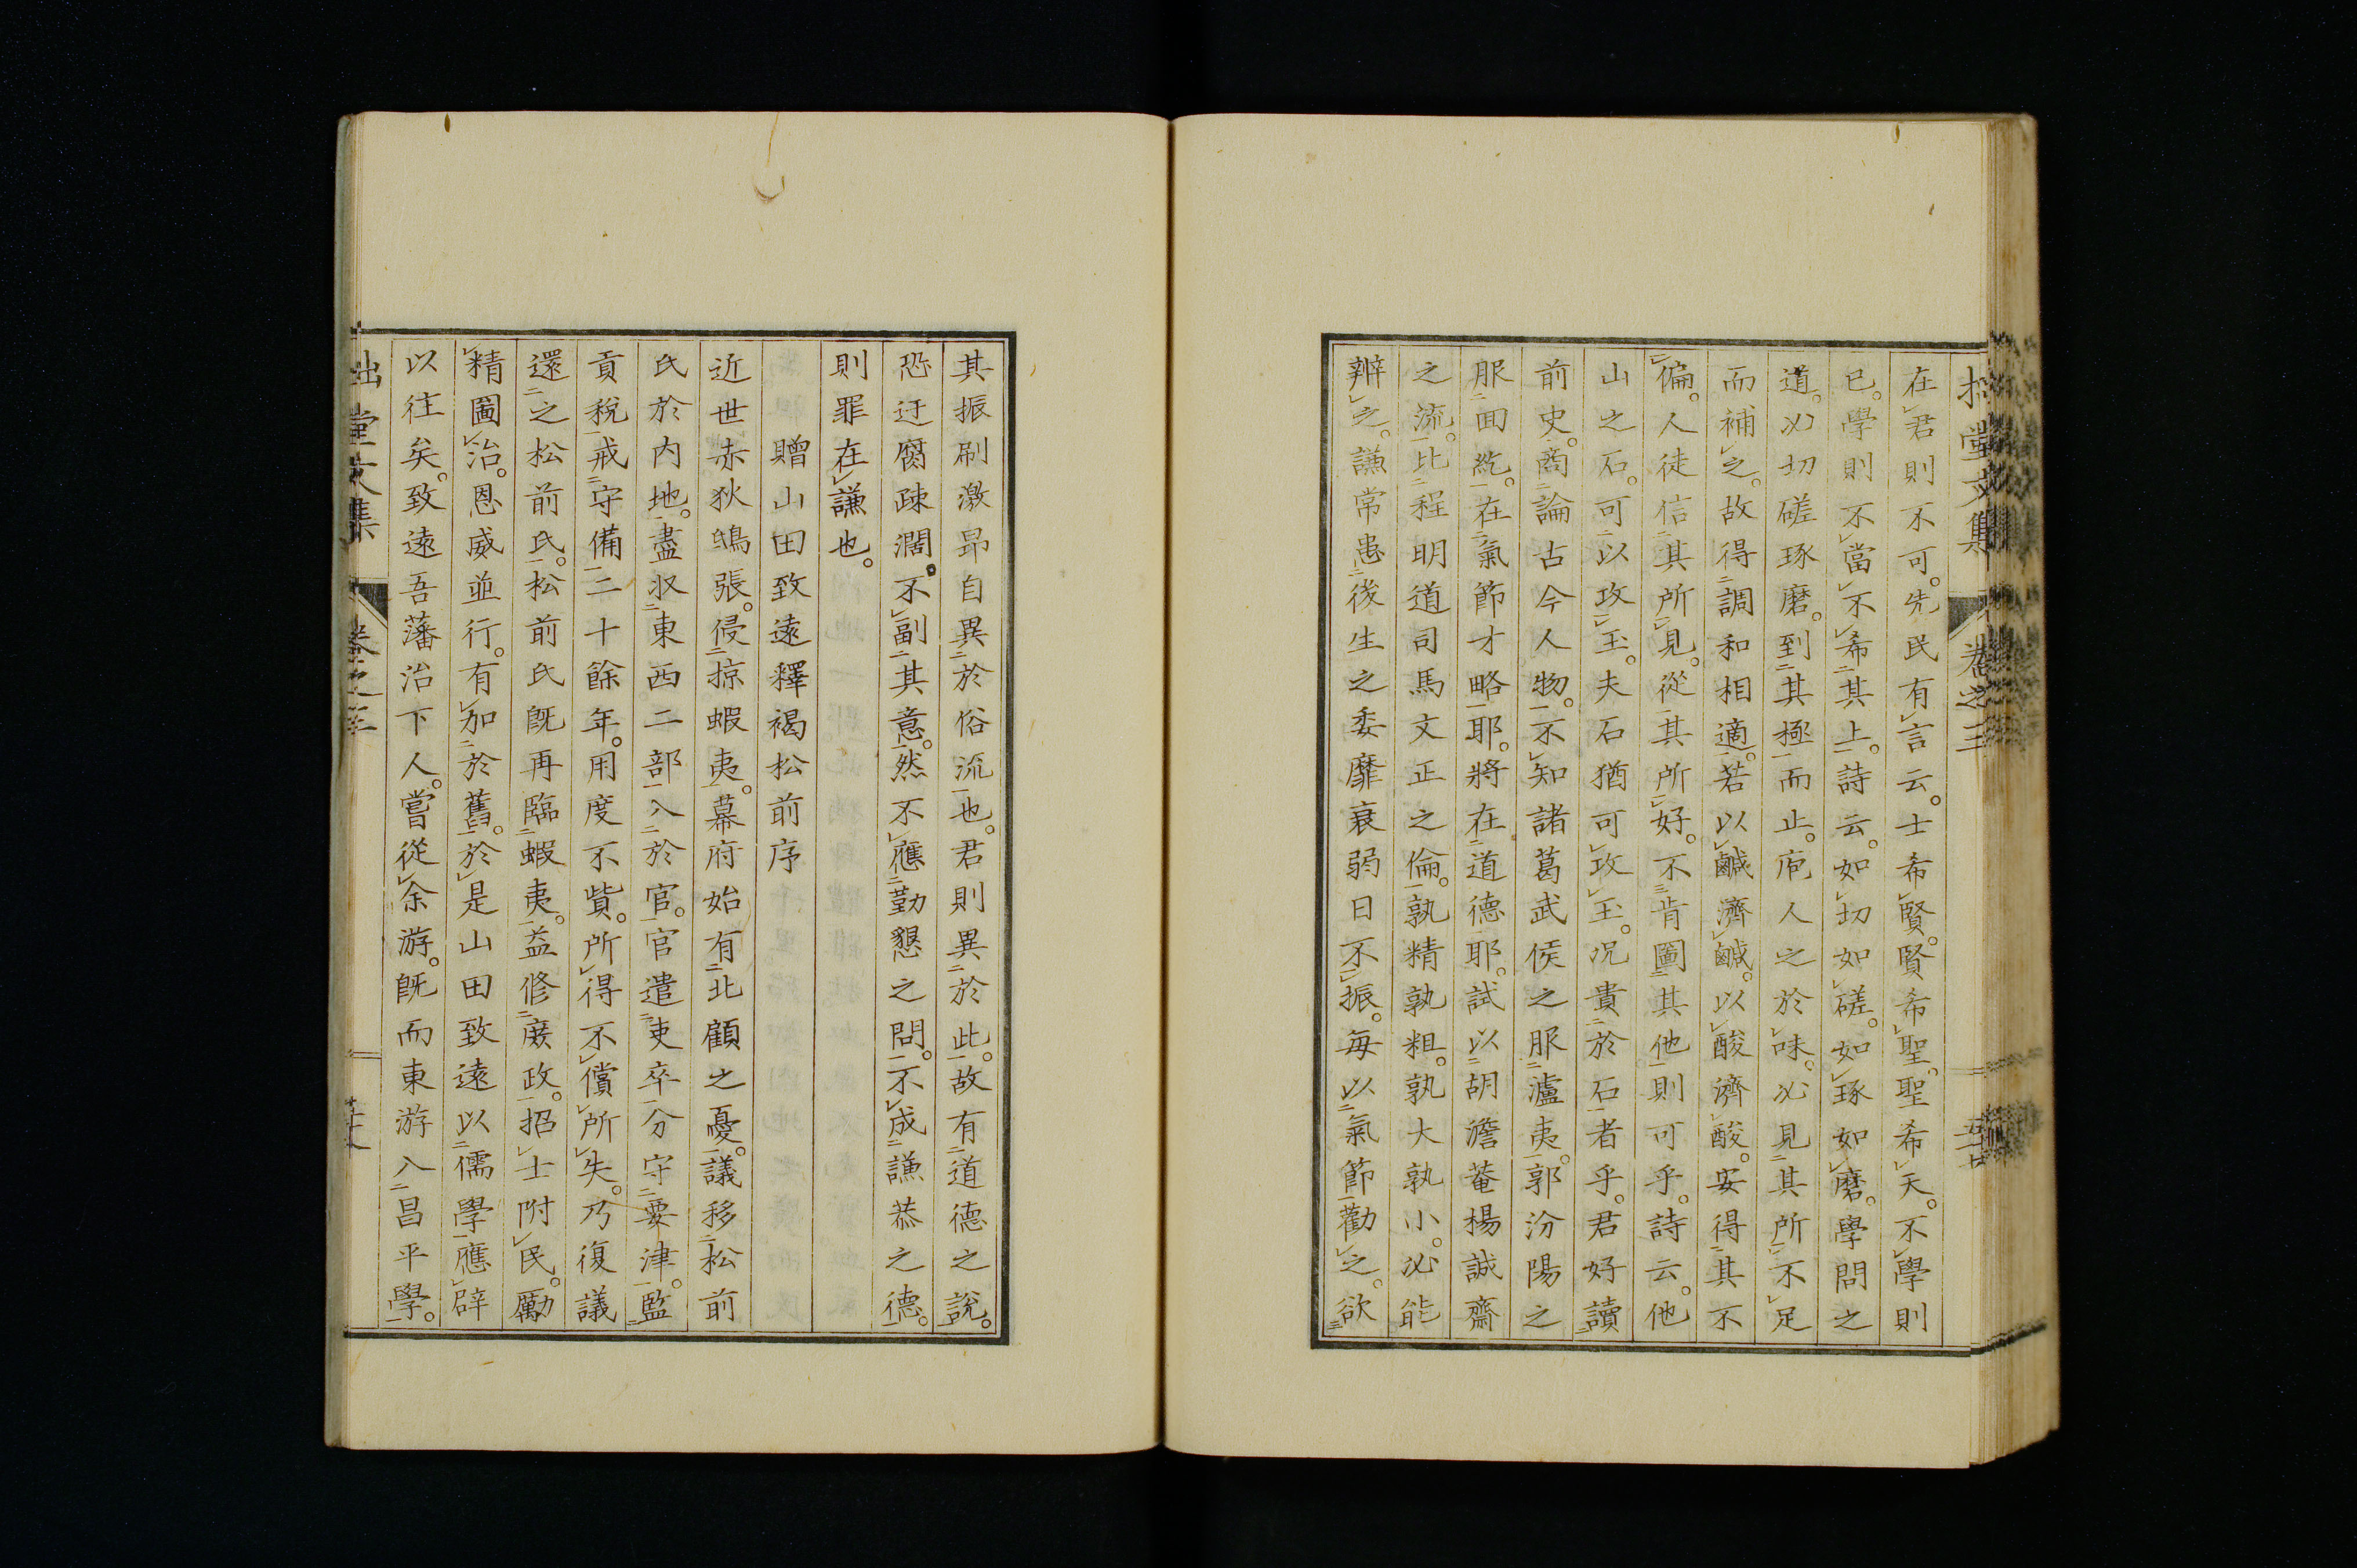 在君則不可。先民有言云。士希賢。賢希聖。聖希天。不學則
已。學則不當不希其上。詩云。如切如磋。如琢如磨。學問之
道。必切磋琢磨。到其極而止。庖人之於味。必見其所不足
而補之。故得調和相適。若以鹹濟鹹。以酸濟酸。安得其不
偏。人徒信其所見。從其所好。不肯圖其他則可乎。詩云。他
山之石。可以攻玉。夫石猶可攻玉。況貴於石者乎。君好讀
前史。商論古今人物。不知諸葛武侯之服瀘夷。郭汾陽之
服回紇。在氣節才略耶。將在道德耶。試以胡澹菴楊誠齋
之流。比程明道司馬文正之倫。孰精孰粗。孰大孰小。必能
辨之。謙常患後生之委靡衰弱日不振。每以氣節勸之。欲
其振刷激昂自異於俗流也。君則異於此。故有道德之說。
恐迂腐疎濶。不副其意。然不應勤懇之問。不成謙恭之德。
則罪在謙也。
贈山田致遠釋褐松前序
近世赤狄鴟張。侵掠蝦夷。幕府始有北顧之憂。議移松前
氏於内地。盡収東西二部入於官。官遣吏卒分守要津。監
貢稅戒守備二十餘年。用度不貲。所得不償所失。乃復議
還之松前氏。松前氏既再臨蝦夷。益修廢政。招士附民。勵
精圖治。恩威並行。有加於舊。於是山田致遠以儒學應辟
以往矣。致遠吾藩治下人。嘗從余游。既而東游入昌平學。
拙堂文集 卷之三